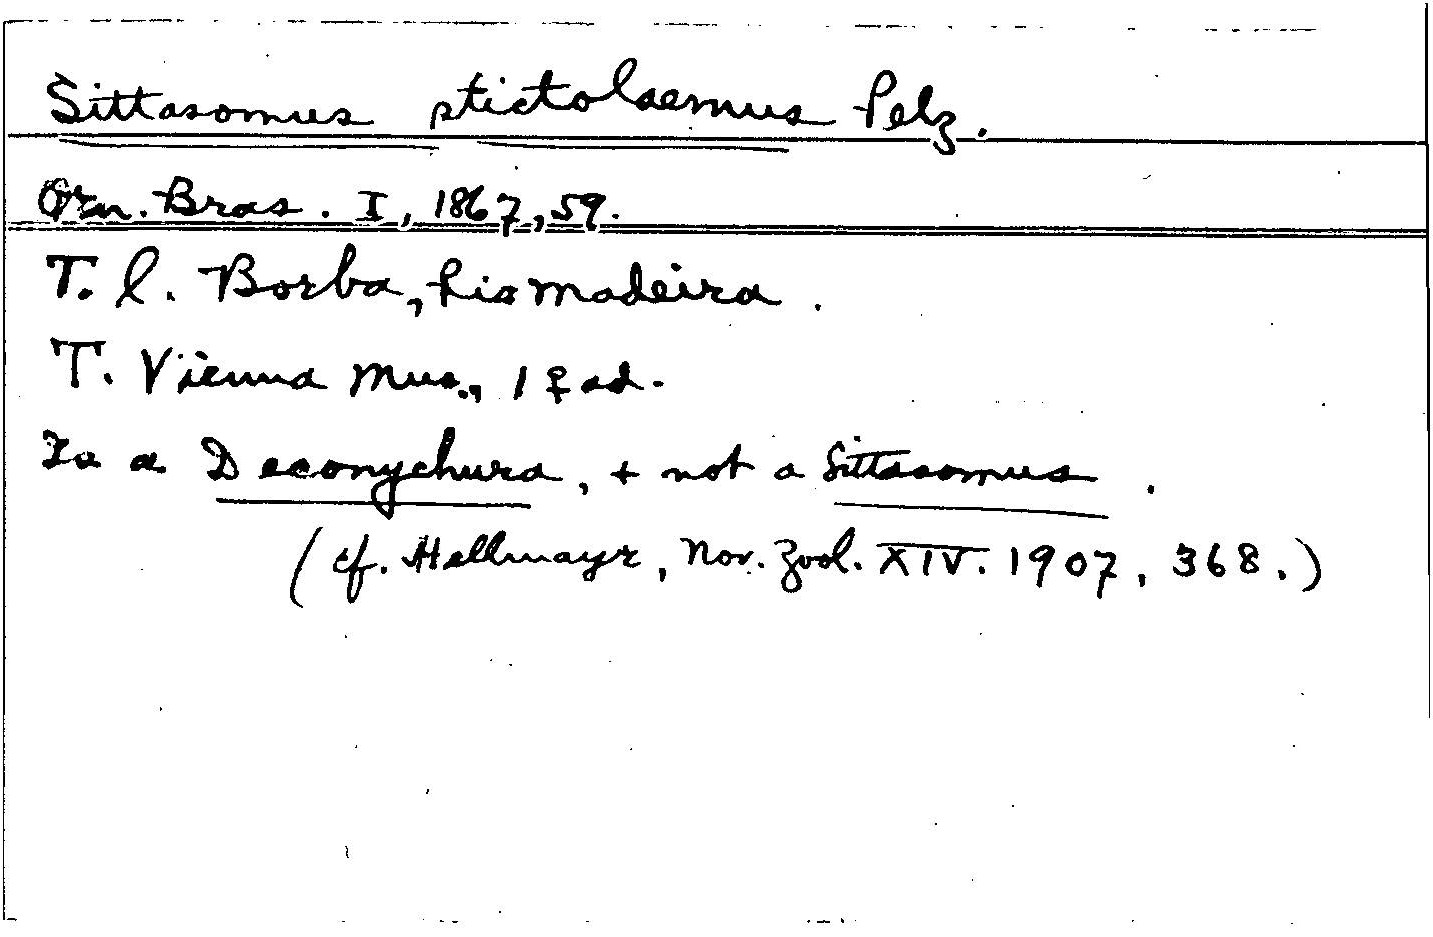 Sittasomus stictolaemus Pelz.
Orn. Bras. I, 1867, 59.
T. l. Borba, Rio Madeira.
T. Vienna Mus., 1 ♀ ad.
Is a Deconychura, + not a Sittasomus.
(cf. Hellmayr, Nov. Zool. XIV. 1907, 368.)